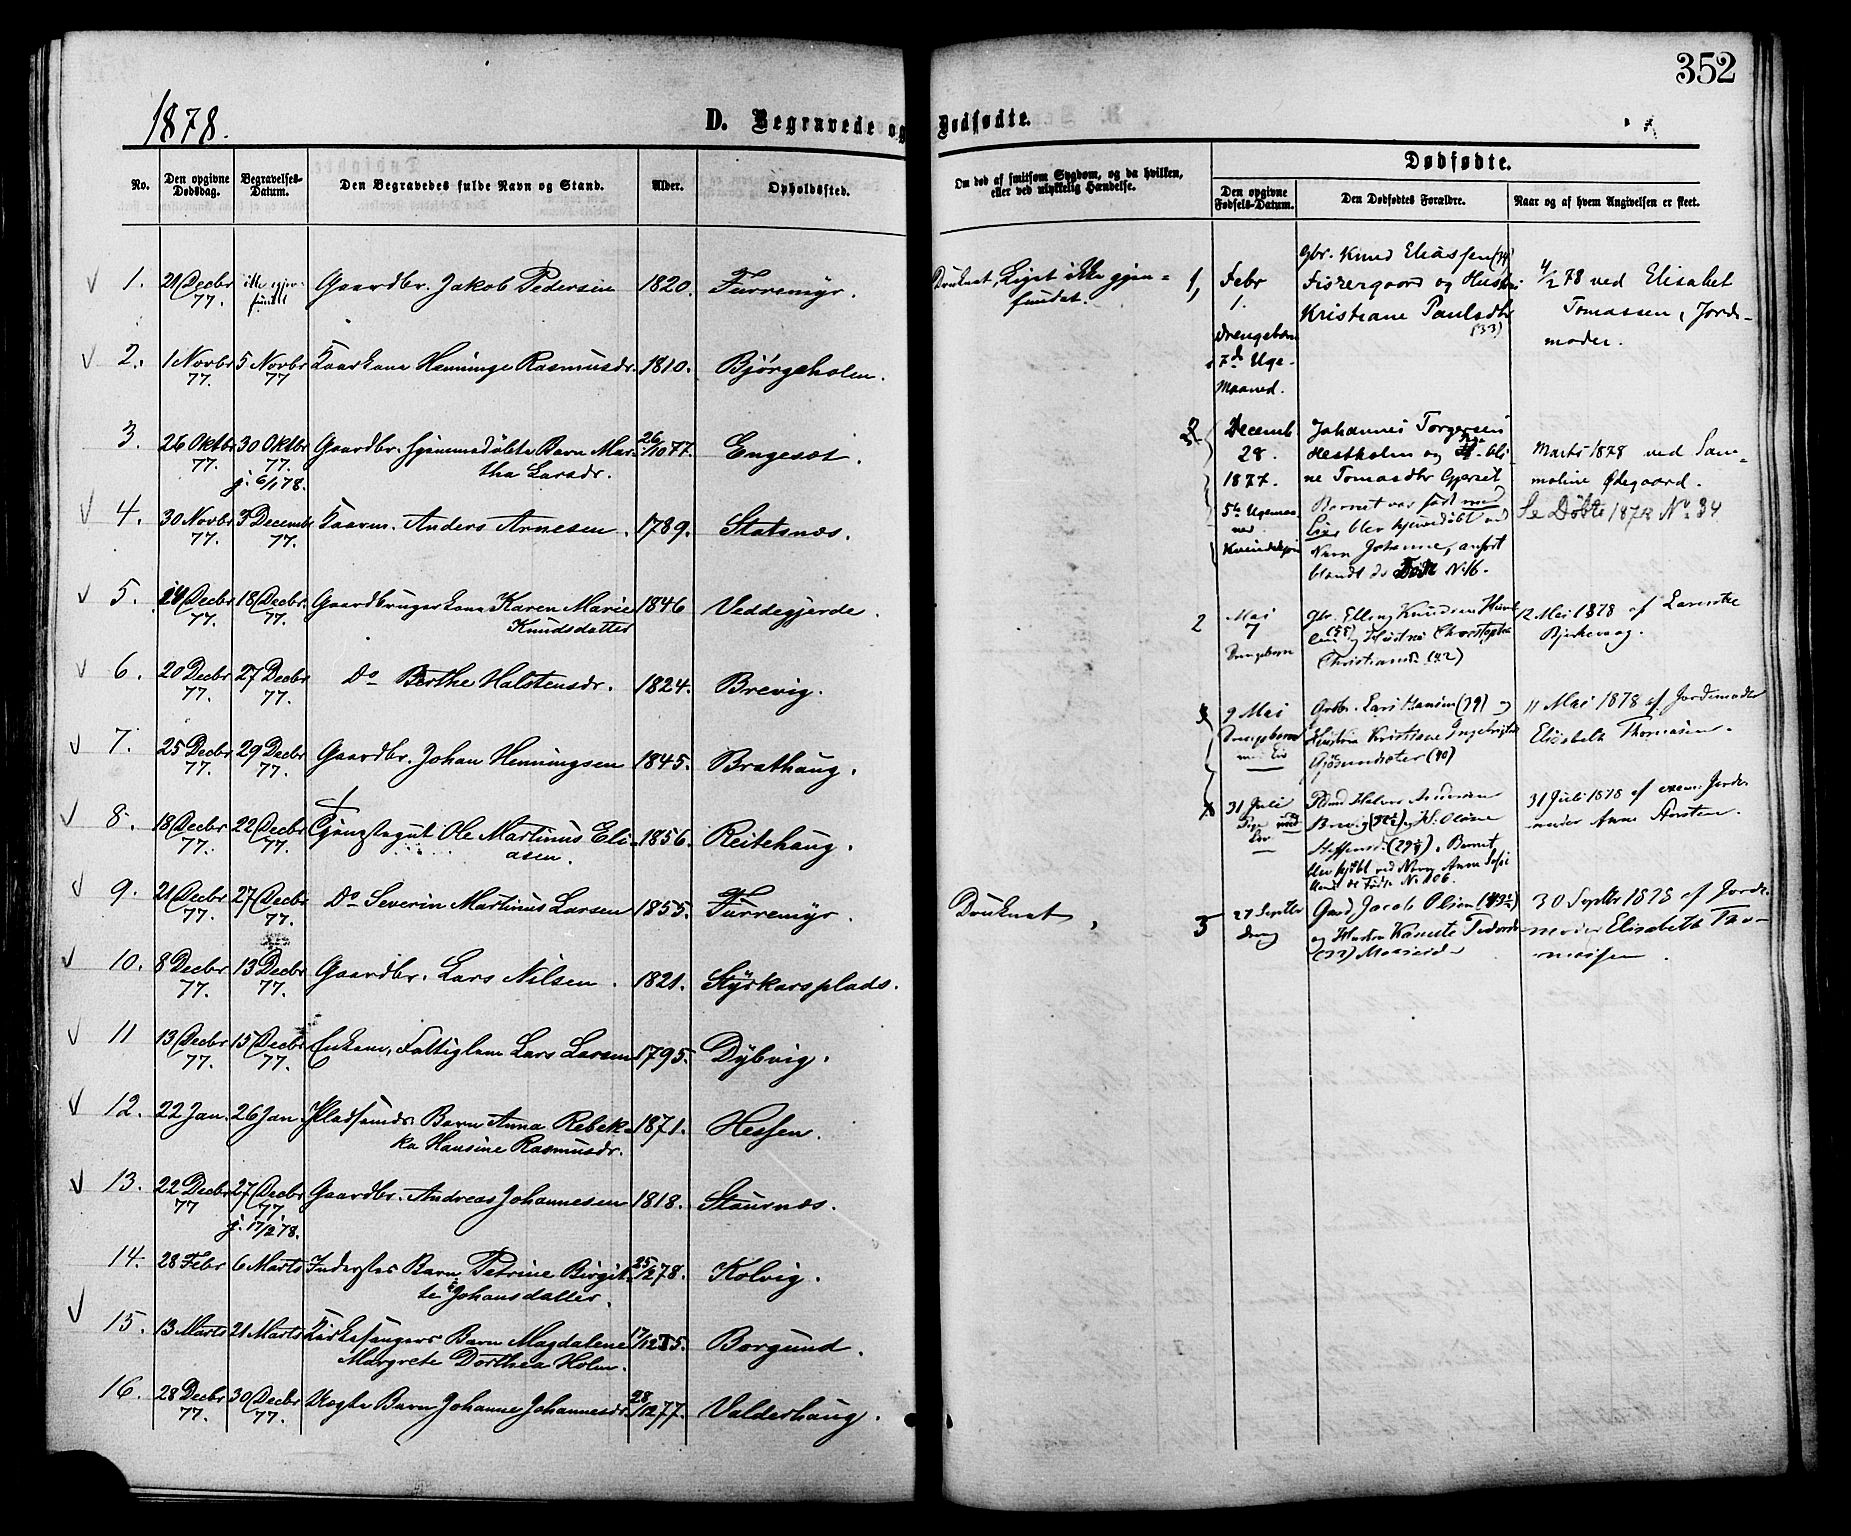 352
1878.
D. Begravede og Dødfødte.
No.
Den opgivne Dødsdag.
Begravelses-Datum.
Den Begravedes fulde Navn og Stand.
Alder.
Opholdssted.
Om død af smitsom Sygdom, og da hvilken, eller ved ulykkelig Hændelse.
Dødfødte.
Den opgivne Fødsels-Datum.
Den Dødfødtes Forældre.
Naar og af hvem Angivelsen er skeet.
1. 21 Decbr 77. ikke gjenfundet Gaardbr. Jakob Pedersen 1820. Furremyr. Druknet, Liget ikke gjenfundet.
2. 1 Novbr 77. 5 Novbr 77 Kaarkone Henninge Rasmusdr. 1810. Bjørgeholen.
3. 26 Oktbr 77. 30 Oktbr 77. j. 6/1 78. Gaardbr. hjemmedøbte Barn Martha Larsdr. 26/10 77. Engeset.
4. 30 Novbr 77. 3 Decemb 77. Kaarm. Anders Arnesen. 1789. Slatsnæs.
5. 14 Decbr 77. 18 Decbr. 77. Gaardbrugerkone Karen Marie Knudsdatter 1846 Veddegjerde.
6. 20 Decbr 77. 27 Decbr 77. Do Berthe Halstensdr. 1824. Brevig.
7. 25 Decbr 77. 29 Decbr 77. Gaardbr. Johan Henningsen 1845. Brathaug.
8. 18 Decbr 77. 22 Decbr 77. Tjenestegut Ole Martinus Eliasen. 1856. Reitehaug.
9. 21 Decbr 77. 27 Decbr 77. Do Severin Martinus Larsen 1855. Furremyr. Druknet,
10. 8 Decbr 77. 13 Decbr 77. Gaardbr. Lars Nilsen. 1821. Styrkarsplads.
11 13 Decbr 77. 15 Decbr 77. Enkem, Fattiglem Lars Larsen 1795. Dybvig.
12. 22 Jan. 26 Jan. Pladsmands Barn Anna Rebekka Hansine Rasmusdr. 1871. Hessen.
13. 22 Decbr 77 27 Decbr 77. j. 17/2 78. Gaardbr. Andreas Johannesen 1818. Staurnæs.
14. 28 Febr 6 Marts Inderstes Barn Petrine Birgitte Johansdatter. 25/2 78. Kolvig.
15. 13 Marts 21 Marts Kirkesangers Barn Magdalene Margrete Dorthea Holm. 17/12 75. Borgund.
16. 28 Decbr 77. 30 Decbr 77. Uægte Barn Johanne Johannesdr. 28/12 77. Valderhaug.
1, Febr 1. Drengebarn i 7de Uge-Maaned.
Gbr. Knud Eliassen
Fiskergaard og Hustru
Kristiane Paulsdtr (33)
4/2 78 ved Elisabet
Tomassen, Jorde-
moder.
Decemb 28. 1877.
Kvindekjøn
Johannes Torgersen
Hestholm og
ne Tomasdtr Gjerset
Barnet var født med
Liv, blev hjemedøbt ved
Navn Johanne, anført
blandt de Døde No 16.
Marts 1878 ved Sam-
moline Ødegaard.
Se Døbte 1878 No 34
2 Mai 7 Drengebarn
Gbr. Elling Knudsen
og Hustru
Christiansd. (42)
12 Mai 1878 af
Bjerkevaag.
9 Mai Drengebarn
Gbr. Lars Hansen (39) og
Hustru Kristiane Ingebrigtine
Gjøsundsæter (40)
11 Mai 1878 af Jordemoder
Elisabeth Thomasen.
31 Juli Pige
Halvor Andersen
Brevig
Steffensd. (29), Barnet
blev hjdbt ved Navn Anne
blandt de Fødte No 106.
31 Juli 1878 af exam. Jorde-
moder Anne Torsten.
5 27 Septbr Dreng
Gaard. Jacob Olsen
og Hustru
30 Septbr 1878 af Jorde-
moder Elisabeth Tho-
massen.